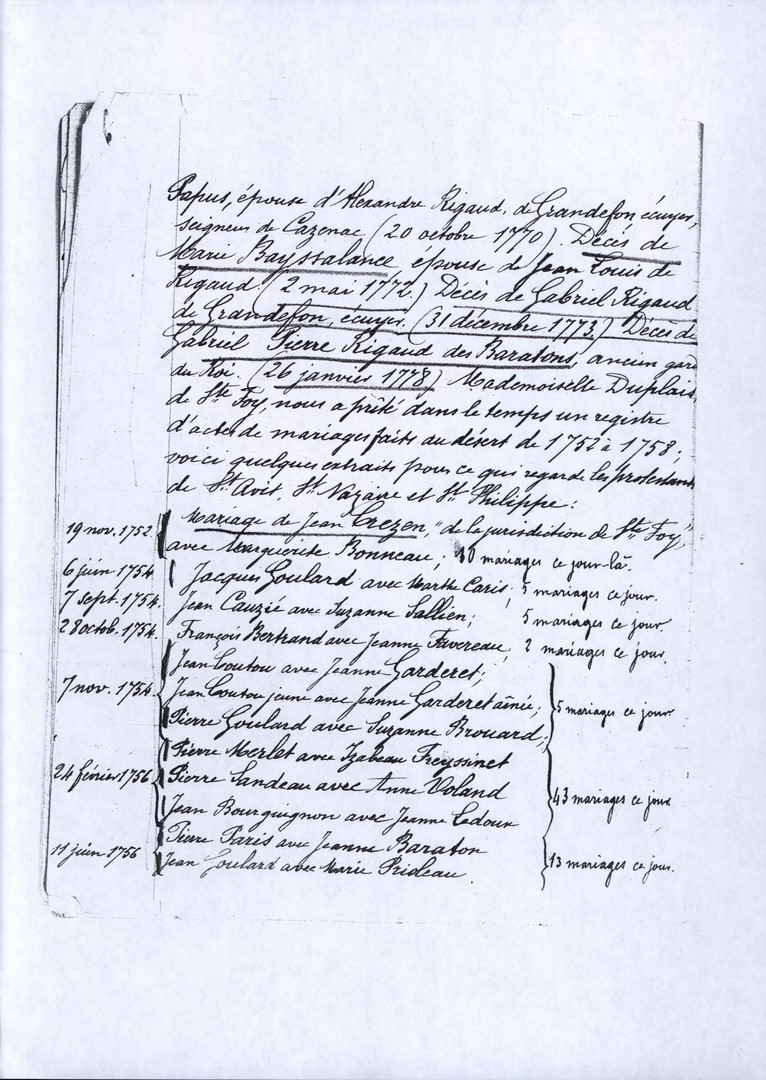 Papus, épouse d'Alexandre Rigaud, de Grandefon écuyer,
seigneur de Cazenac (20 octobre 1770). Décès de
Marie Bayssalance, épouse de Jean Louis de
Rigaud. (2 mai 1772.) Décès de Gabriel Rigaud
de Grandefon, écuyer. (31 décembre 1773.) Décès de
Gabriel Pierre Rigaud des Baratons, ancien gard
du Roi. (26 janvier 1778) Mademoiselle Duplais,
de Ste Foy, nous a prêté dans le temps un registre
d'actes de mariages faits au désert de 1752 à 1758;
voici quelques extraits pour ce qui regarde les protestants
de St Avit, St Nazaire et St Philippe:
19 nov. 1752. Mariage de Jean Crezen, "de la jurisdiction de Ste Foy,"
avec Marguerite Bonneau; 10 mariages ce jour-là.
6 juin 1754. Jacques Goulard avec Marthe Caris; 5 mariages ce jour.
7 sept. 1754. Jean Cauzié avec Suzanne Sallien; 5 mariages ce jour
28 octob. 1754. François Bertrand avec Jeanne Favereau, 2 mariages ce jour.
Jean Coutou avec Jeanne Garderet;
7 nov. 1754. Jean Coutou jeune avec Jeanne Garderet aînée; 5 mariages ce jour
Pierre Goulard avec Suzanne Brouard;
Pierre Merlet avec Izabeau Freyssinet
24 février 1756 Pierre Landeau avec Anne Voland
Jean Bourguignon avec Jeanne Ledoux 43 mariages ce jour
Pierre Paris avec Jeanne Baraton
11 juin 1756 Jean Goulard avec Marie Prioleau. 13 mariages ce jour.